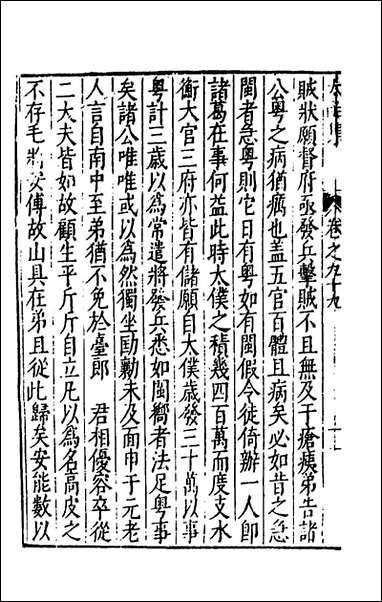 卷之九十九
賊狀願督府亟發兵擊賊不且無及于瘡痍弟告諸
公粵之病猶瘍也蓋五官百體且病矣必如昔之急
閩者急粵則它日有粵如有閩假令徒倚辦一人即
諸葛在事何益此時太僕之積幾四百萬而度支水
衡大官三府亦皆有儲願自太僕歲發三十萬以事
粵計三歲以為常遣將發兵悉如閩嚮者法足粵事
矣諸公唯唯或以為然獨坐劻勷未及面巾于元老
人言自南中至弟猶不免於臺郎　君相優容卒從
二大夫皆如故顧生平斤斤自立凡以為名高皮之
不存毛將安傅故山具在弟且從此歸矣安能數以